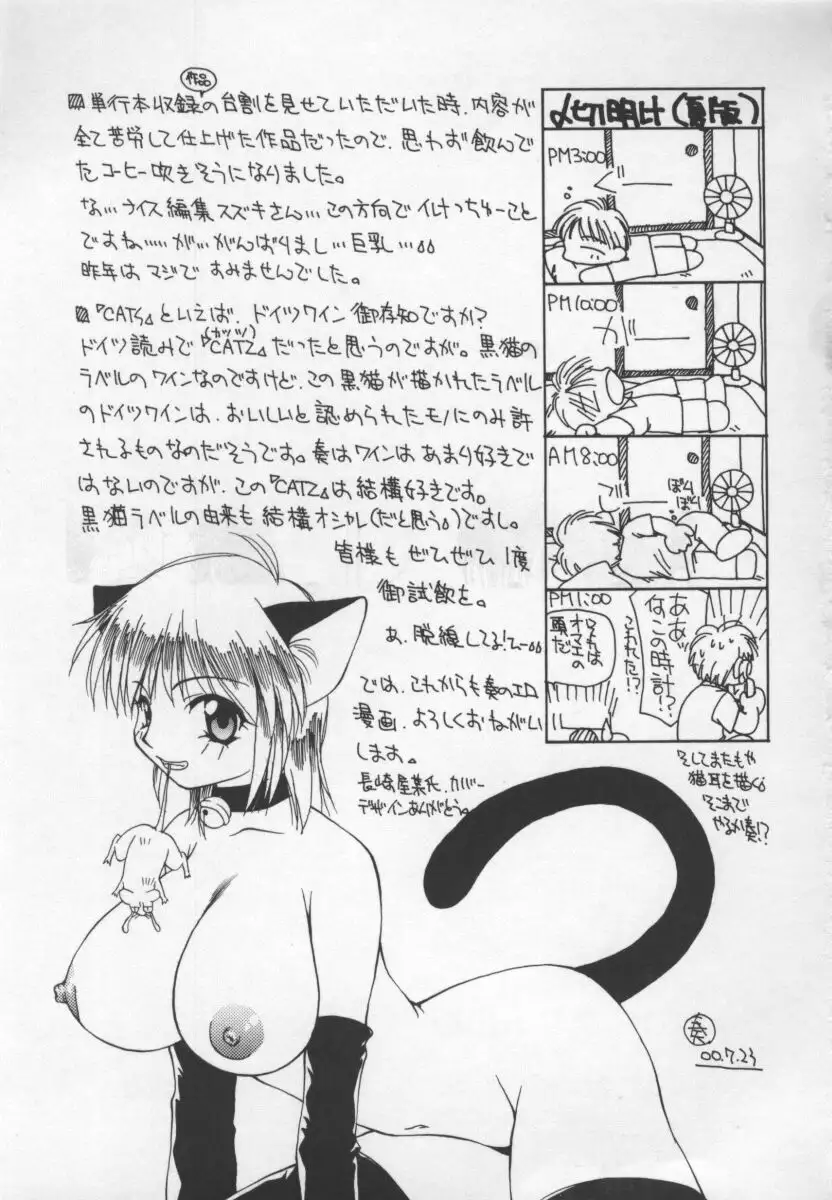 作品
▨単行本収録の台割を見せていただいた時、内容が
全て苦労して仕上げた作品だったので、思わず飲んで
たコーヒー吹きそうになりました。
な…ライス編集スズキさん…この方向でイけっちゅーこと
ですね……が…がんばりまし…巨乳…
昨年はマジですみませんでした。
▨『CATS』といえば、ドイツワイン御存知ですか?
(カッツ)
ドイツ読みで『CATZ』だったと思うのですが。黒猫の
ラベルのワインなのですけど、この黒猫が描かれたラベル
のドイツワインは、おいしいと認められたモノにのみ許
されるものなのだそうです。奏はワインはあまり好きで
はないのですが、この『CATZ』は結構好きです。
黒猫ラベルの由来も結構オシャレ(だと思う。)ですし。
皆様もぜひぜひ1度
御試飲を。
あ、脱線してる!てー
では、これからも奏のエロ
漫画、よろしくおねがい
します。
長崎屋葉氏、カバー
デザインありがとう。
〆切明け(夏版)
PM3:00
PM10:00
ガー
AM8:00
ぼり
ぼり
PM1:00
ああッ
なにこの時計!?
こわれた!?
オマエの
頭だ
そしてまたもや
猫耳を描く
そこまで
やるか奏!?
奏
00.7.23